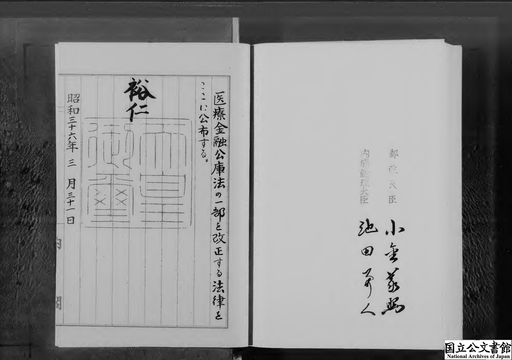 医療金融公庫法の一部を改正する法律を
ここに公布する。
裕仁
天皇
御璽
昭和三十六年三月三十一日
内閣
郵政大臣
小金義照
内閣総理大臣
池田勇人
国立公文書館
National Archives of Japan